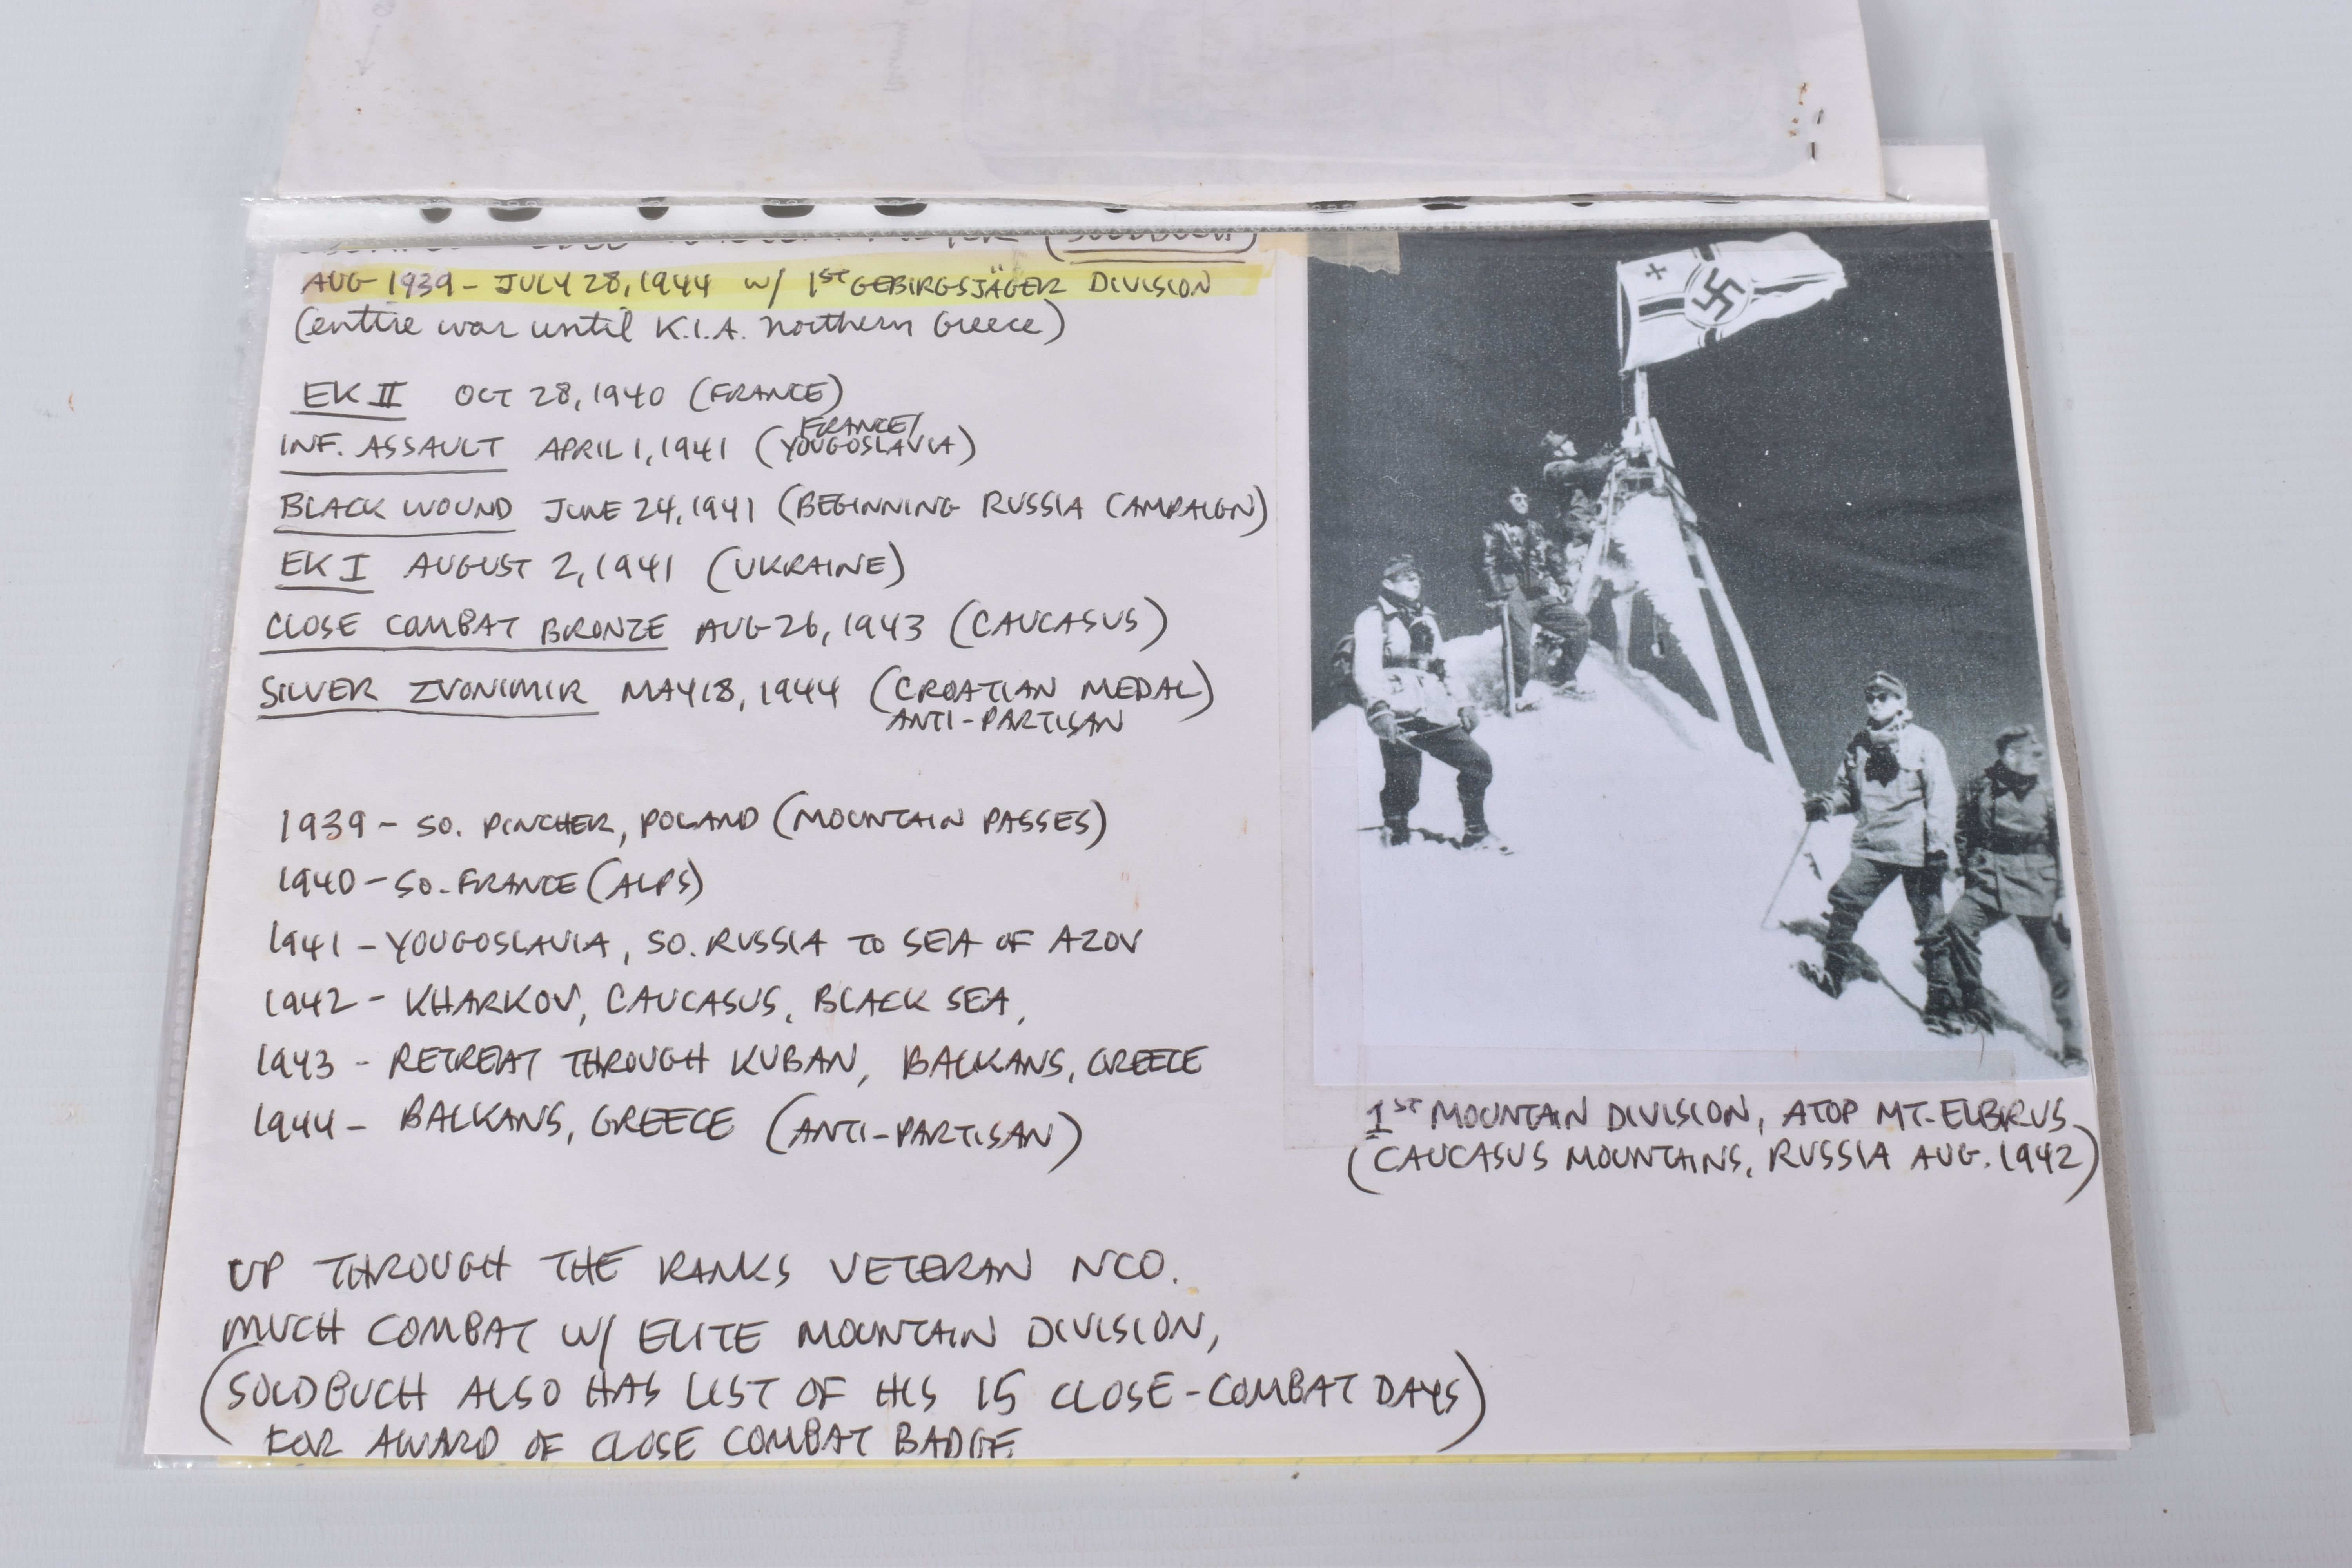 (SOLDBUCH)
AUG 1939 - JULY 28, 1944 W/ 1ST GEBIRGSJÄGER DIVISION
(entire war until K.I.A. northern Greece)
EK II OCT 28, 1940 (FRANCE)
FRANCE/
INF. ASSAULT APRIL 1, 1941 (YOUGOSLAVIA)
BLACK WOUND JUNE 24, 1941 (BEGINNING RUSSIA CAMPAIGN)
EK I AUGUST 2, 1941 (UKRAINE)
CLOSE COMBAT BRONZE AUG 26, 1943 (CAUCASUS)
SILVER ZVONIMIR MAY 18, 1944 (CROATIAN MEDAL)
ANTI-PARTISAN
1939 - SO. PINCHER, POLAND (MOUNTAIN PASSES)
1940 - SO. FRANCE (ALPS)
1941 - YOUGOSLAVIA, SO. RUSSIA TO SEA OF AZOV
1942 - KHARKOV, CAUCASUS, BLACK SEA,
1943 - RETREAT THROUGH KUBAN, BALKANS, GREECE
1944 - BALKANS, GREECE (ANTI-PARTISAN)
UP THROUGH THE RANKS VETERAN NCO.
MUCH COMBAT W/ ELITE MOUNTAIN DIVISION,
(SOLDBUCH ALSO HAS LIST OF HIS 15 CLOSE-COMBAT DAYS)
FOR AWARD OF CLOSE COMBAT BADGE
1ST MOUNTAIN DIVISION, ATOP MT. ELBRUS
(CAUCASUS MOUNTAINS, RUSSIA AUG. 1942)